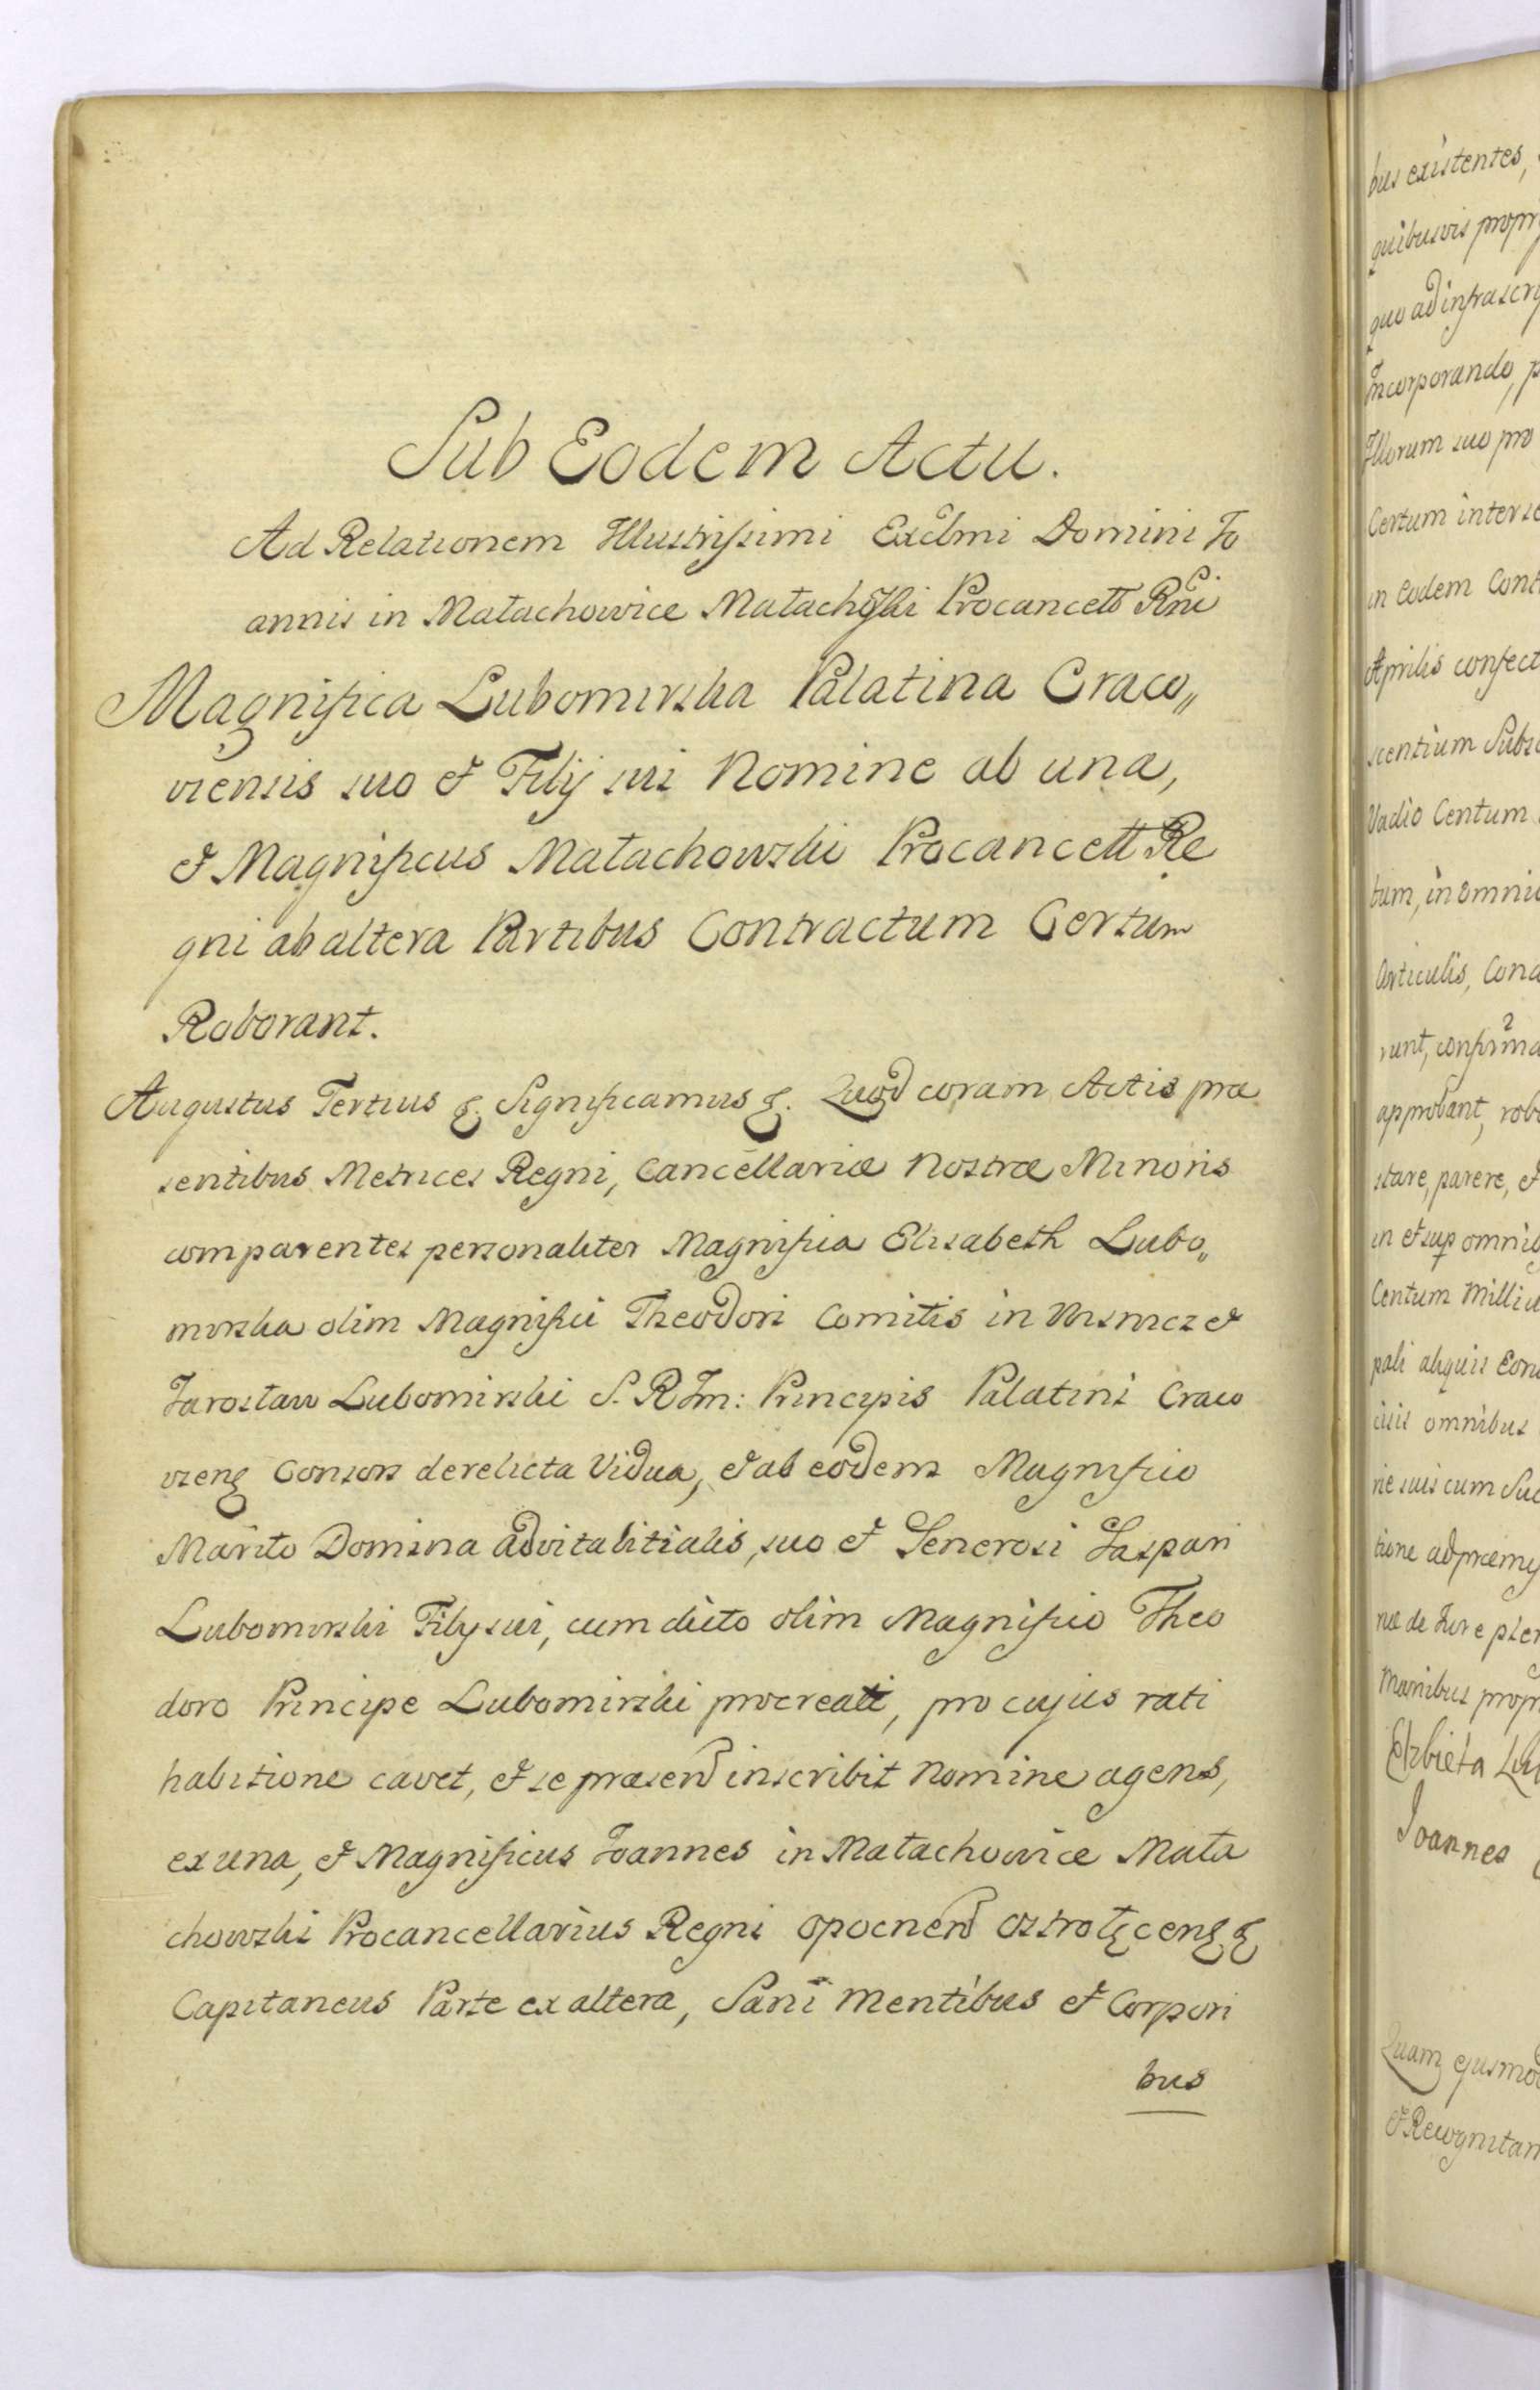 Sub Eodem Actu.
Ad Relationem Illustrissimi Excellmi Domini Jo
annis in Małachowice Małachowski Procancell Rni
Magnifica Lubomirska Palatina Craco„
viensis suo et Filij sui Nomine ab una,
et Magnificus Małachowski Procancell Re
gni ab altera Partibus Contractum Certum
Roborant.
Augustus Tertius &. Significamus &. Quod coram Actis præ
sentibus Metrices Regni, Cancellariæ Nostræ Minoris
comparentes personaliter Magnifica Elisabeth Lubo„
mirska olim Magnifici Theodori Comitis in Wisnicz et
Jarosław Lubomirski S. R Im: Principis Palatini Craco
vien Consors derelicta Vidua, et ab eodem Magnifico
Marito Domina advitalitialis, suo et Generosi Gaspari
Lubomirski Filij sui, cum dicto olim Magnifico Theo
doro Principe Lubomirski procreati, pro cujus rati
habitione cavet, et se præsen inscribit Nomine agens,
ex una, et Magnificus Joannes in Małachowice Mała
chowski Procancellarius Regni Opocnen Ostrołęcen &
Capitaneus Parte ex altera, Sani Mentibus et Corpori
bus
bus existentes,
quibusvis propr
quo ad infrascr
Incorporando, p
Illorum suo pro
Certum inter se
in Eodem Cont
Aprilis confect
scentium Subsc
Vadio Centum
tum, in omni
Articulis, Cond
runt, confirma
approbant, robo
stare, parere, et
in et sup omnib
Centum Milliu
pali aliquis Con
isis omnibus
rie suis cum Suc
tione ad præmi
næ de Jure ple
Manibus propr
Elzbieta Lu
Joannes
Quam ejusmod
et Recognitan